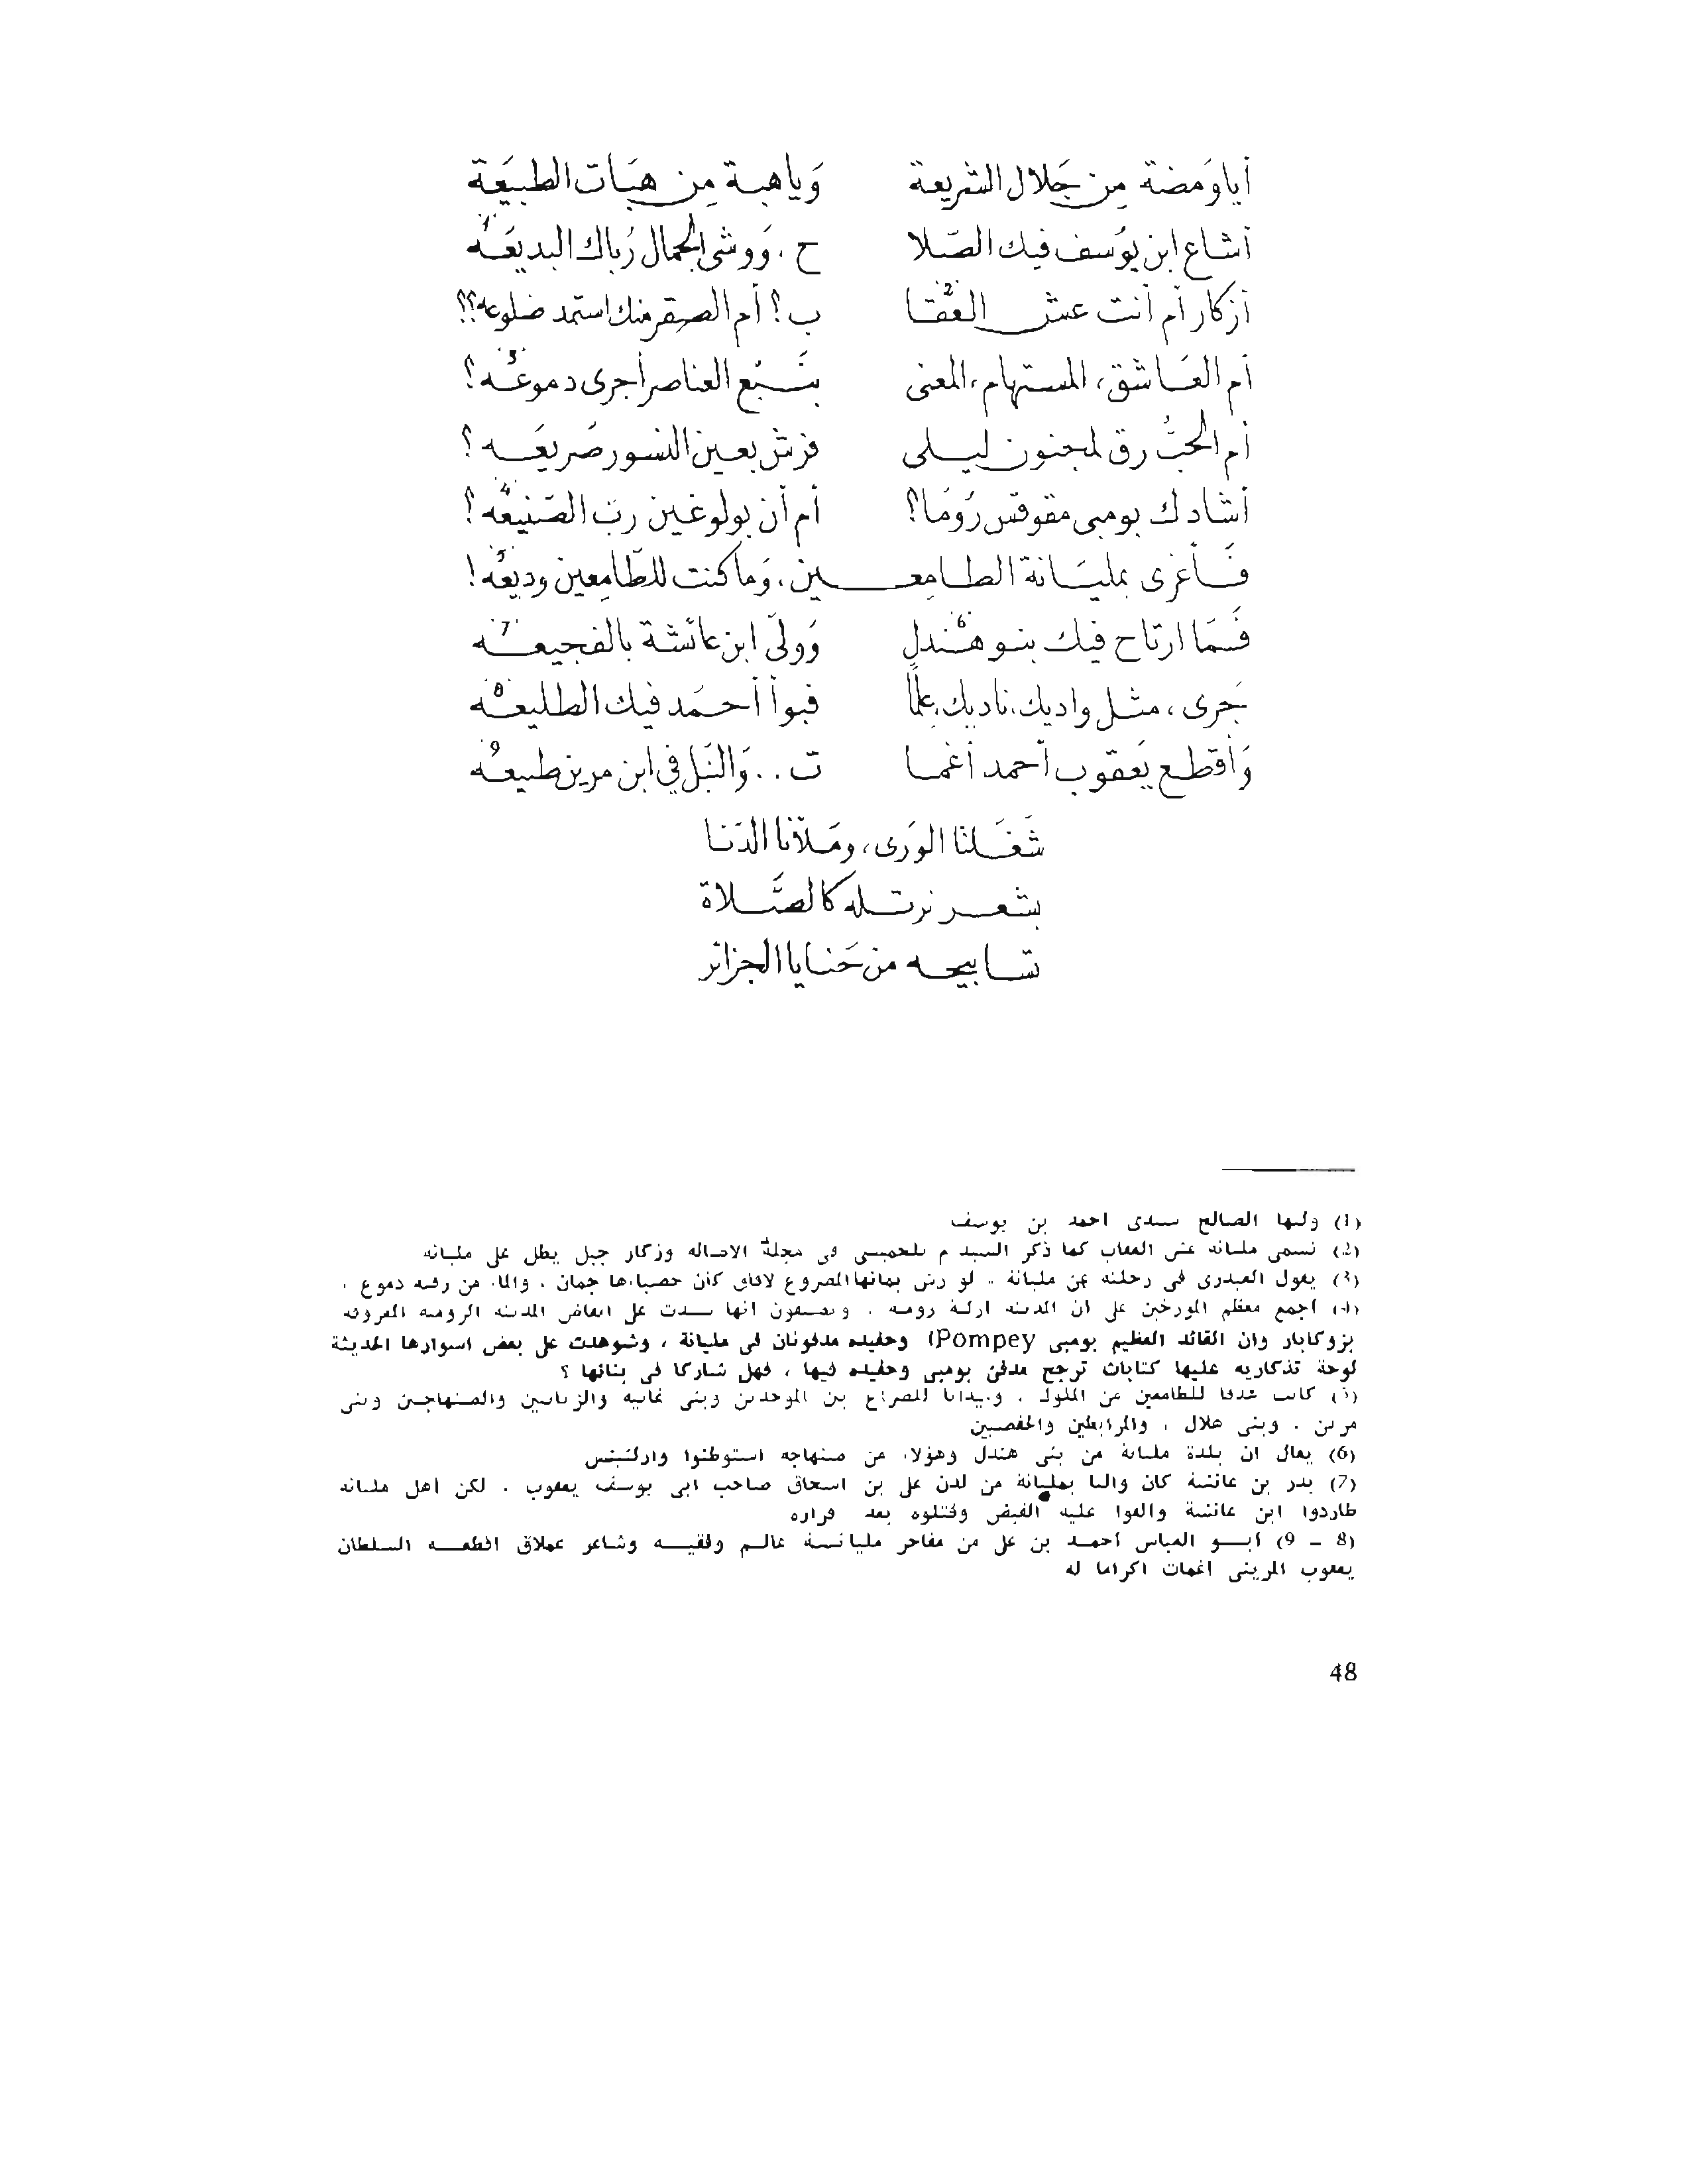 أياوَمضة مِن جَلال الشريعة وَياهبة مِن هبَات الطبيعَة
أشاع ابن يوُسف فيك الصّلا ح، وَوشى الجمال رُباك البديعَه (1)
أزكار أم أنت عش العُقا (2) ب؟ أم الصقر منك استمد ضلوعه؟؟
أم العَاشق، المستهام، المعنى بنَبْع العناصر أجرى دموعَه؟ (3)
أم الحبُّ رق لمجنون ليلى فرش بعين النسور صَريعَه؟
أشادك بومبي مقوقس رُومَا؟ أم أن بولوغين ربّ الصَنيعَه؟ (4)
فَأغرى بمليَانة الطامعين، وَما كنت للطّامِعين وديعَه! (5)
فَمَا ارتاح فيك بنو هندلِ (6) وَولىّ ابن عائشة بالفجيعه (7)
جَرى، مثل واديك، ناديك، علمًا فبوأ أحمَد فيك الطليعه (8)
وَأقطع يَعقوب أحمد أغما ت.. وَالنَبل في ابن مرين طبيعُه (9)
شَغَلنا الوَرى، ومَلأنا الدّنا
بشعر نرتله كالصَّلاة
تسابيحه من حَنايا الجزائر
(1) وليها الصالح سيدى احمد بن يوسف
(2) تسمى مليانه عش العقاب كما ذكر السيد م بلحميسى فى مجلة الاصاله وزكار جبل يطل على مليانه
(3) يقول العبدرى فى رحلته عن مليانة .. لو رئى بمائها المصروع لافاق كان حصباءها جمان ، والماء من رقته دموع .
(4) اجمع معظم المؤرخين على ان المدينه ازلية رومية . ويضيفون انها شيدت على انقاض المدينه الرومية المعروفه
بزوكابار وان القائد العظيم بومبى (Pompey وحفيده مدفونان فى مليانة ، وشوهدت على بعض اسوارها الحديثة
لوحة تذكاريه عليها كتابات ترجح مدفن بومبى وحفيده فيها ، فهل شاركا فى بنائها ؟
(5) كانت هدفا للطامعين من الملوك ، وميدانا للصراع بين الموحدين وبنى غانية والزيانيين والصنهاجيين وبنى
مرين . وبنى هلال ، والمرابطين والحفصيين
(6) يقال ان بلدة مليانة من بنى هندل وهؤلاء من صنهاجه استوطنوا وارلشنيس
(7) بدر بن عائشة كان واليا بمليانة من لدن على بن اسحاق صاحب ابى يوسف يعقوب . لكن اهل مليانه
طاردوا ابن عائشة والقوا عليه القبض وقتلوه بعد فراره
(8 - 9) أبو العباس أحمد بن على من مفاخر مليانة عالم وفقيه وشاعر عملاق اقطعه السلطان
يعقوب المرينى اغمات اكراما له
48